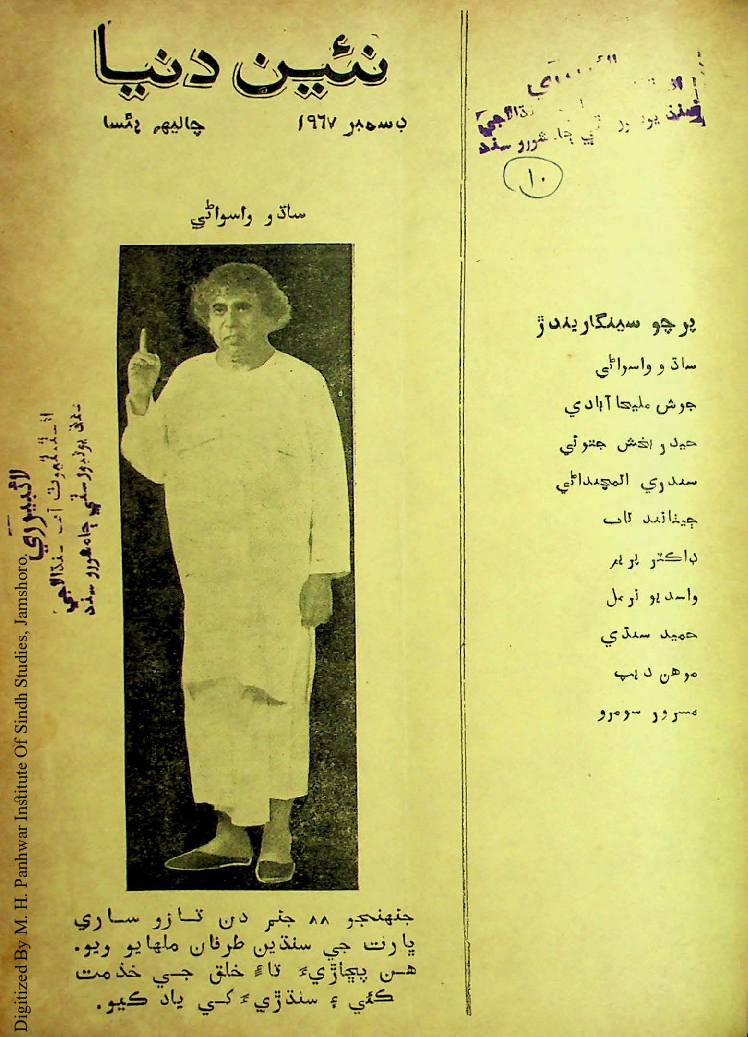 نئين دنيا
ڊسمبر ١٩٦٧ چاليهہ پئسا
ساڌو واسواڻي
جنهنجو ٨٨ جنم دن تازو ساري
ڀارت جي سنڌين طرفان ملهايو ويو.
هن پڇاڙيءَ تاءِ خلق جي خذمت
ڪئي ۽ سنڌڙيءَ کي ياد ڪيو.
١٠
پرچو سينگاريندڙ
ساڌو واسواڻي
جوش مليحاآبادي
حيدر بخش جتوئي
سندري اتمچنداڻي
ڊاڪٽر پريم
واسديو نرمل
حميد سنڌي
موهن ديپ
سرور سومرو
لائبريري
انسٽيٽيوٽ آف سنڌالاجي
سنڌ يونيورسٽي ڄامشورو سنڌ
Digitized By M. H. Panhwar Institute Of Sindh Studies, Jamshoro.